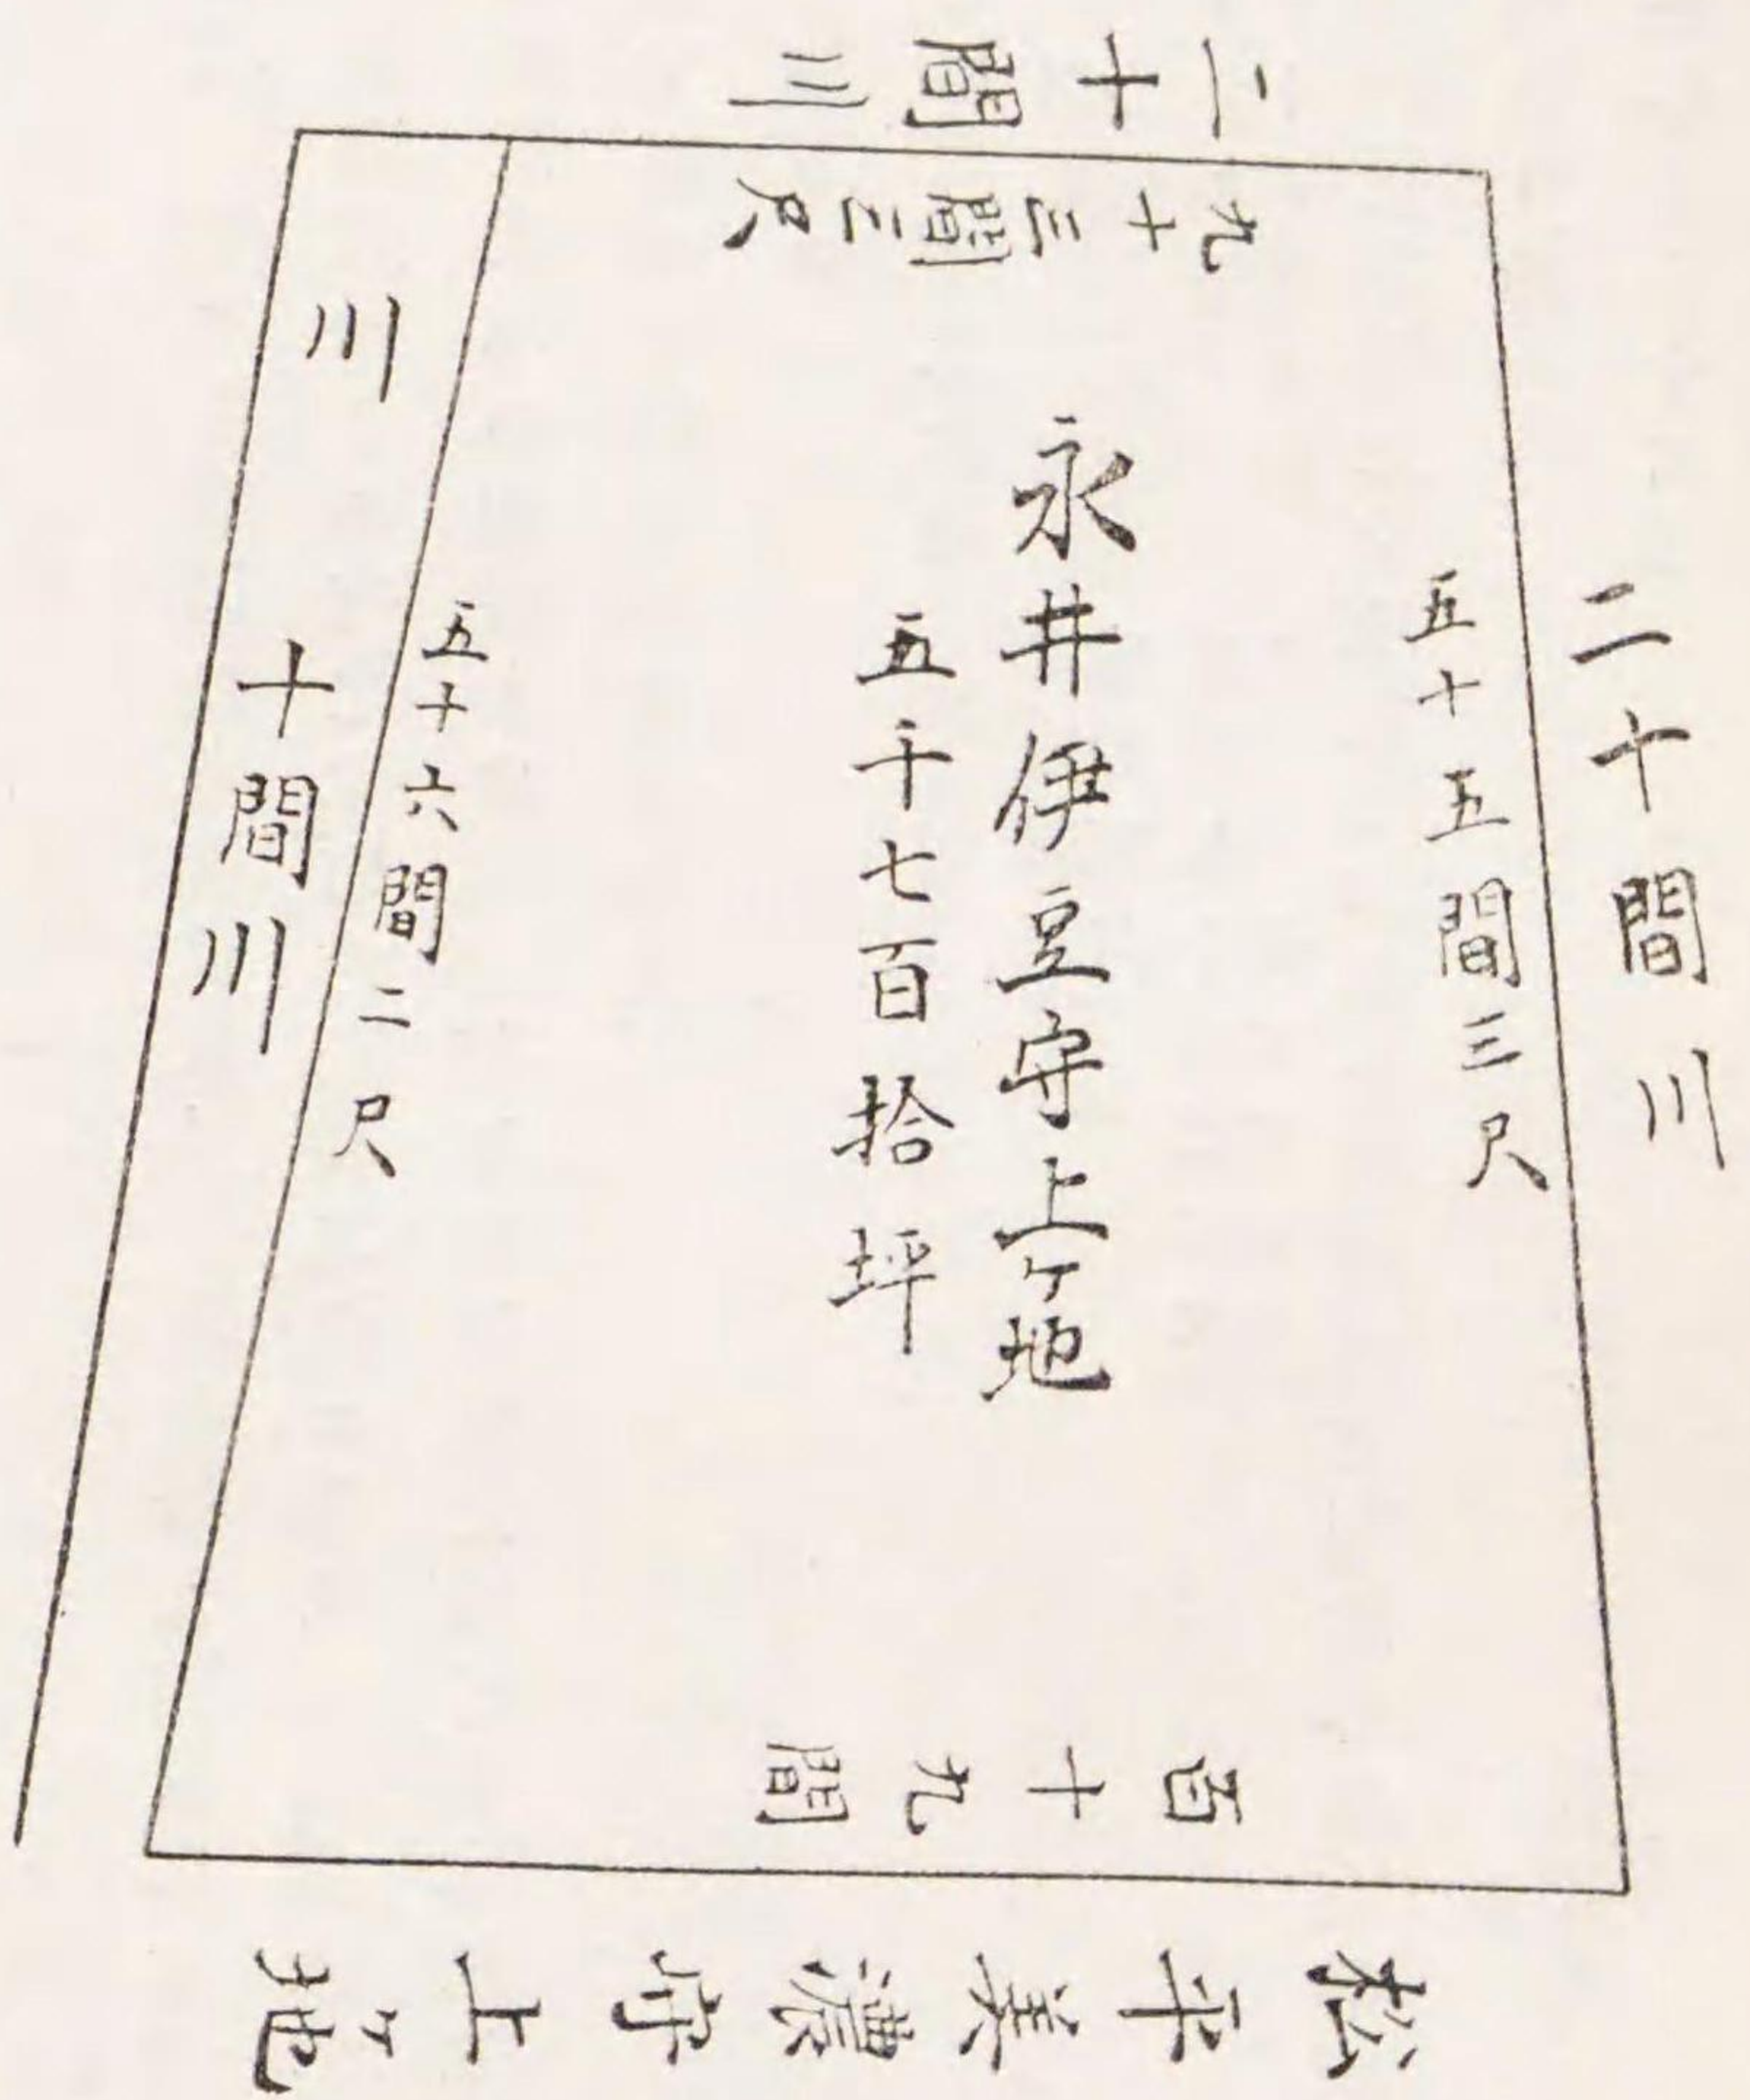 二十間川
九十三間三尺
二十間川
五十五間三尺
永井伊豆守上ヶ地
五千七百拾坪
五十六間二尺
川
十間川
百十九間
松平美濃守上ヶ地